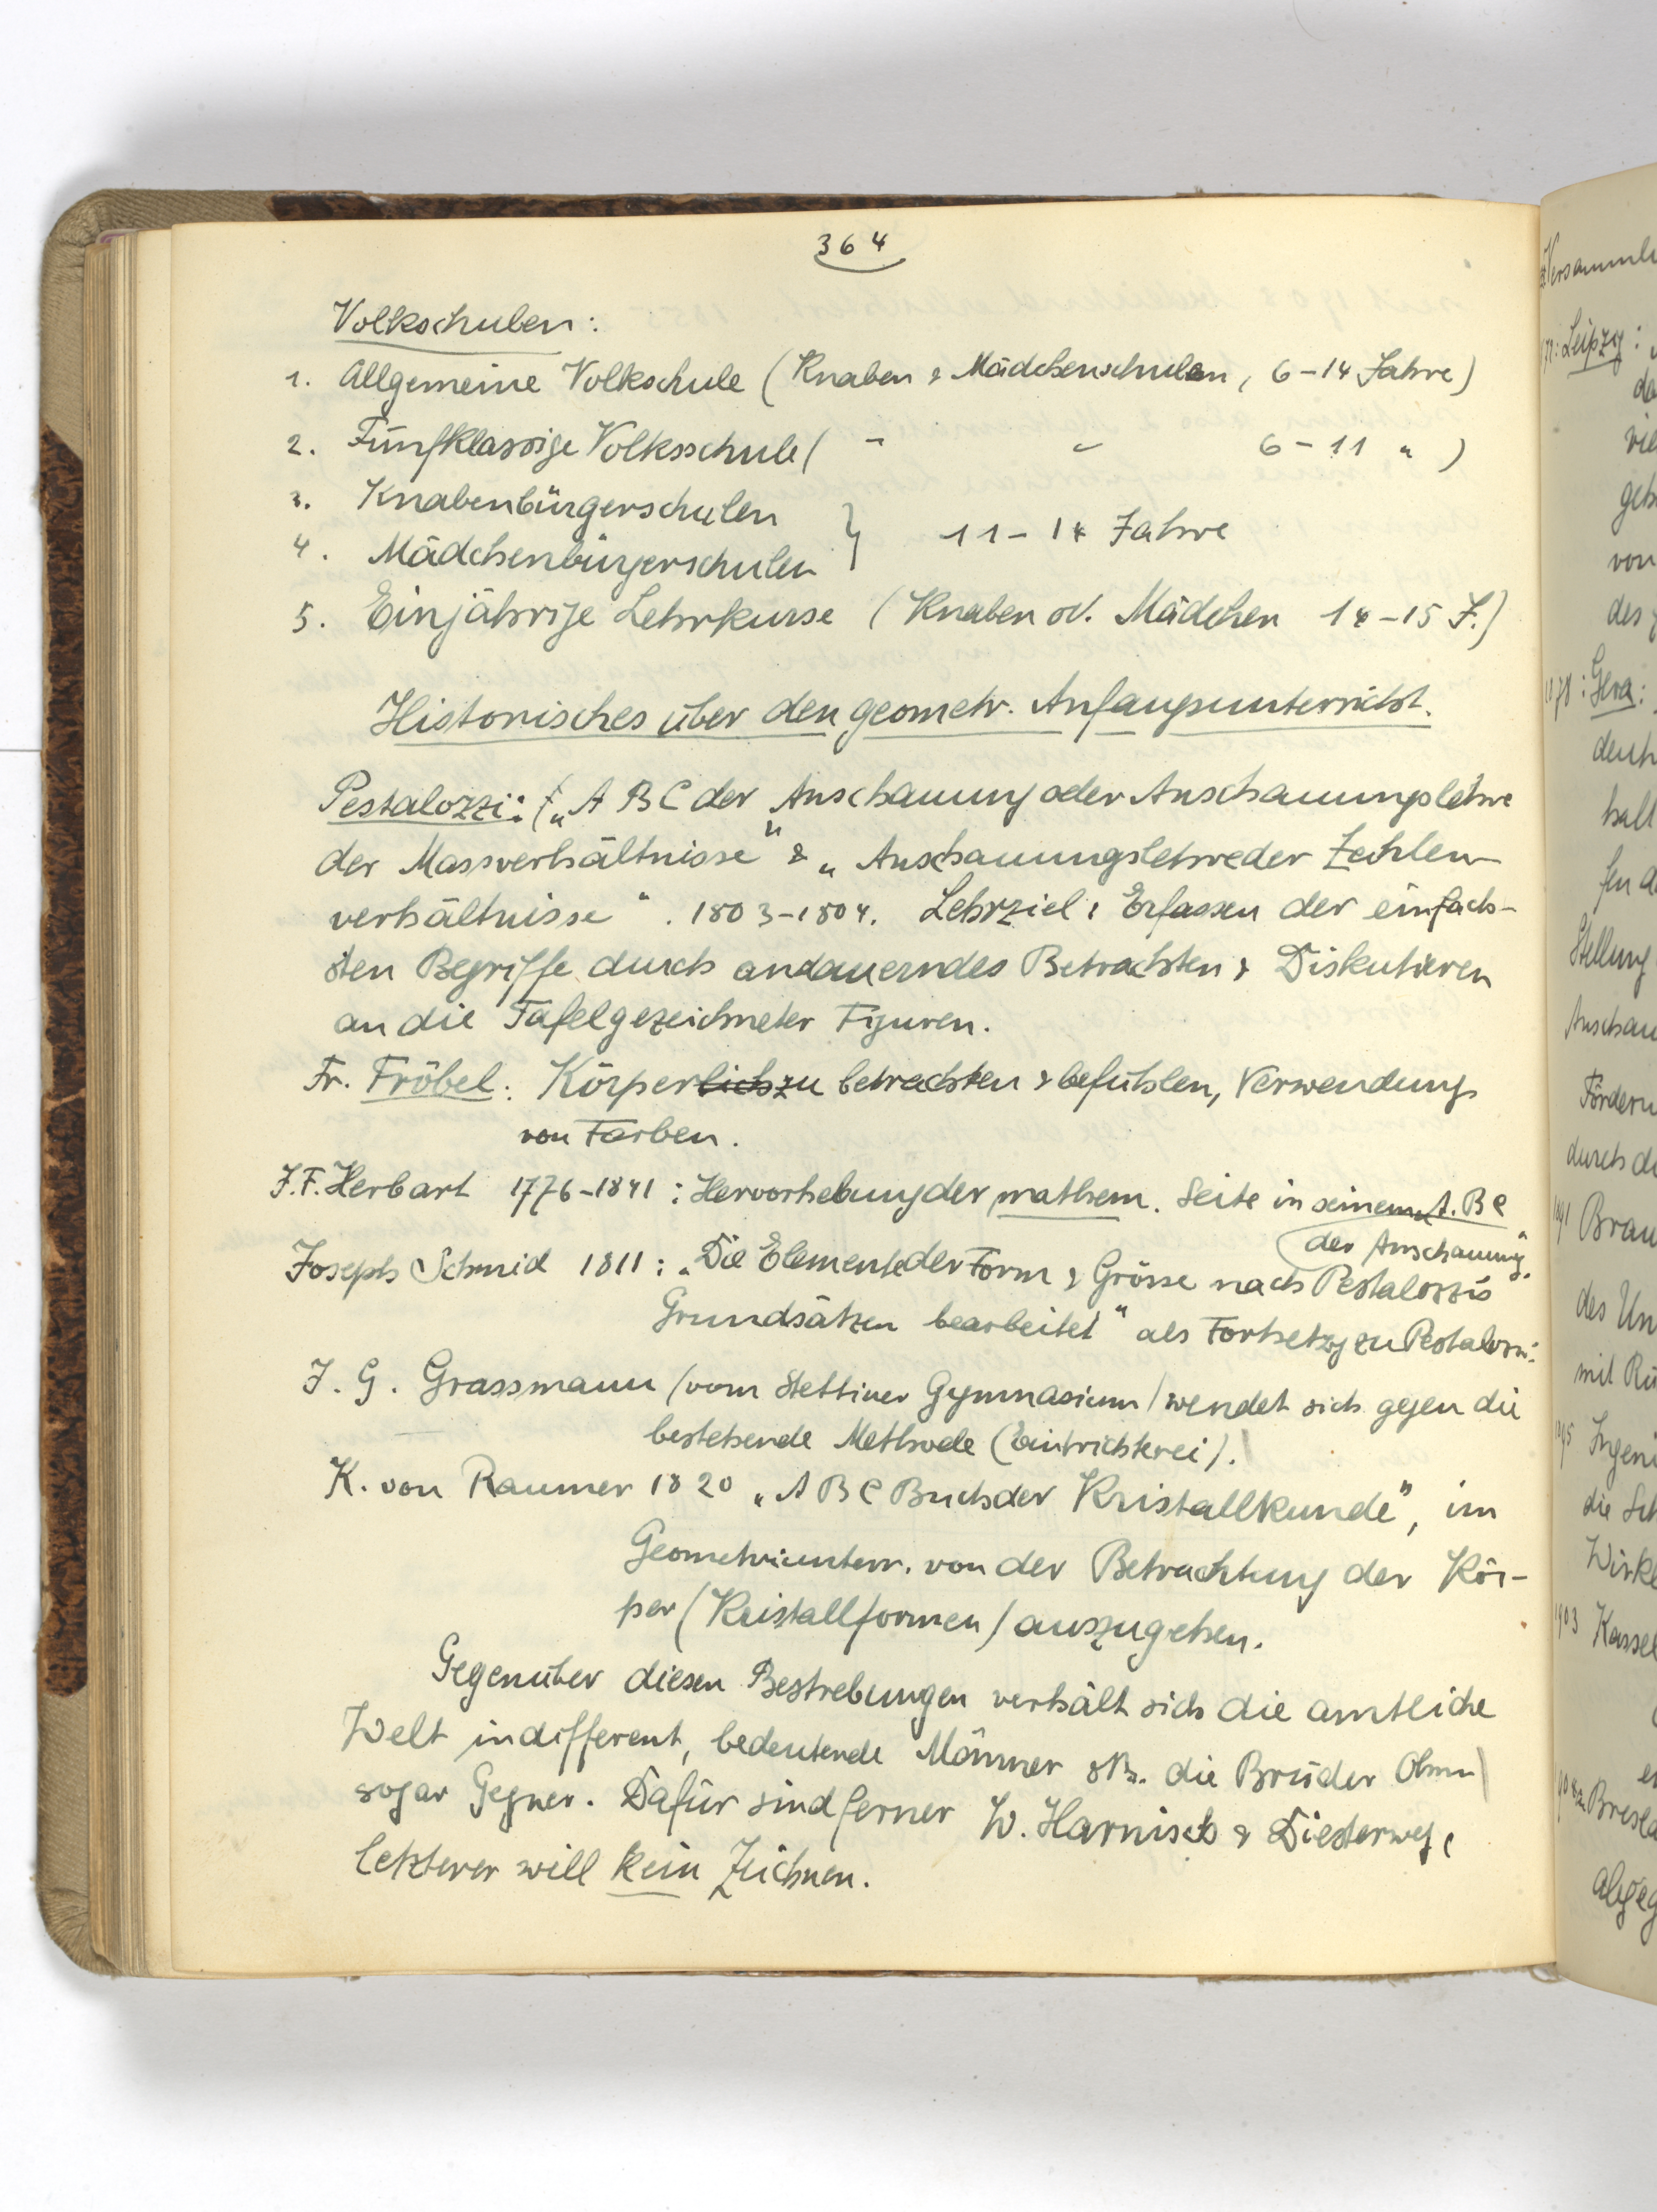 364
Volkschulen:
1. Allgemeine Volkschule (Knaben & Mädchenschulen, 6-14 Jahre)
2. Fünfklassige Volksschule ( " " 6-11 " )
3. Knabenbürgerschulen
4. Mädchenbürgerschulen } 11-14 Jahre
5. Einjährige Lehrkurse (Knaben od. Mädchen 14-15 J.)
Historisches über den geometr. Anfangsunterricht.
Pestalozzi: („A B C der Anschauung oder Anschauungslehre
der Massverhältnisse" & „Anschauungslehre der Zahlen-
verhältnisse". 1803-1804. Lehrziel: Erfassen der einfach-
sten Begriffe durch andauerndes Betrachten & Diskutieren
an die Tafel gezeichneter Figuren.
Fr. Fröbel: Körperlich zu betrachten & befühlen, Verwendung
von Farben.
J.F. Herbart 1776-1841: Hervorhebung der mathem. Seite in seinem A.B C
der Anschauung".
Joseph Schmid 1811: „Die Elemente der Form & Grösse nach Pestalozzis
Grundsätzen bearbeitet" als Fortsetzg zu Pestalozzi.
J. G. Grassmann (vom Stettiner Gymnasium) wendet sich gegen die
bestehende Methode (Eintrichterei).
K. von Raumer 1820 „A B C Buch der Kristallkunde", im
Geometrieunterr. von der Betrachtung der Kör-
per (Kristallformen) auszugehen.
Gegenüber diesen Bestrebungen verhält sich die amtliche
Welt indifferent, bedeutende Männer die Brüder Ohm
sogar Gegner. Dafür sind ferner W. Harnisch & Diesterweg,
letzterer will kein Zeichnen.
Versammlu
Leipzig:
da
vie
geb
von
des
78: Gera:
deut
halt
fen d
Stellung
Anschau
Fördern
durch d
Brau
des Un
mit Ru
Ingeni
die Sch
Wirk
1903 Kassel
Bresla